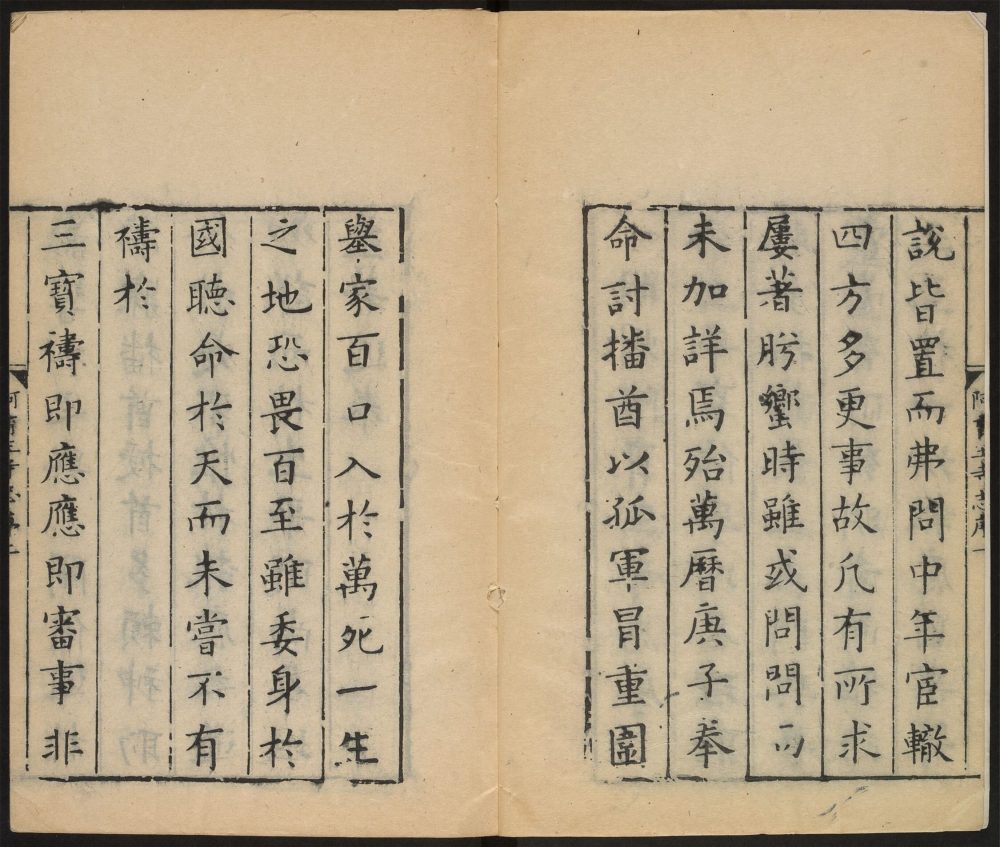 說皆置而弗問中年宦轍
四方多更事故凢有所求
屢著肹蠁時雖或問問而
未加詳焉殆萬曆庚子奉
命討播酋以孤軍冒重圍
舉家百口入於萬死一生
之地恐畏百至雖委身於
國聽命於天而未嘗不有
禱於
三寶禱即應應即審事非